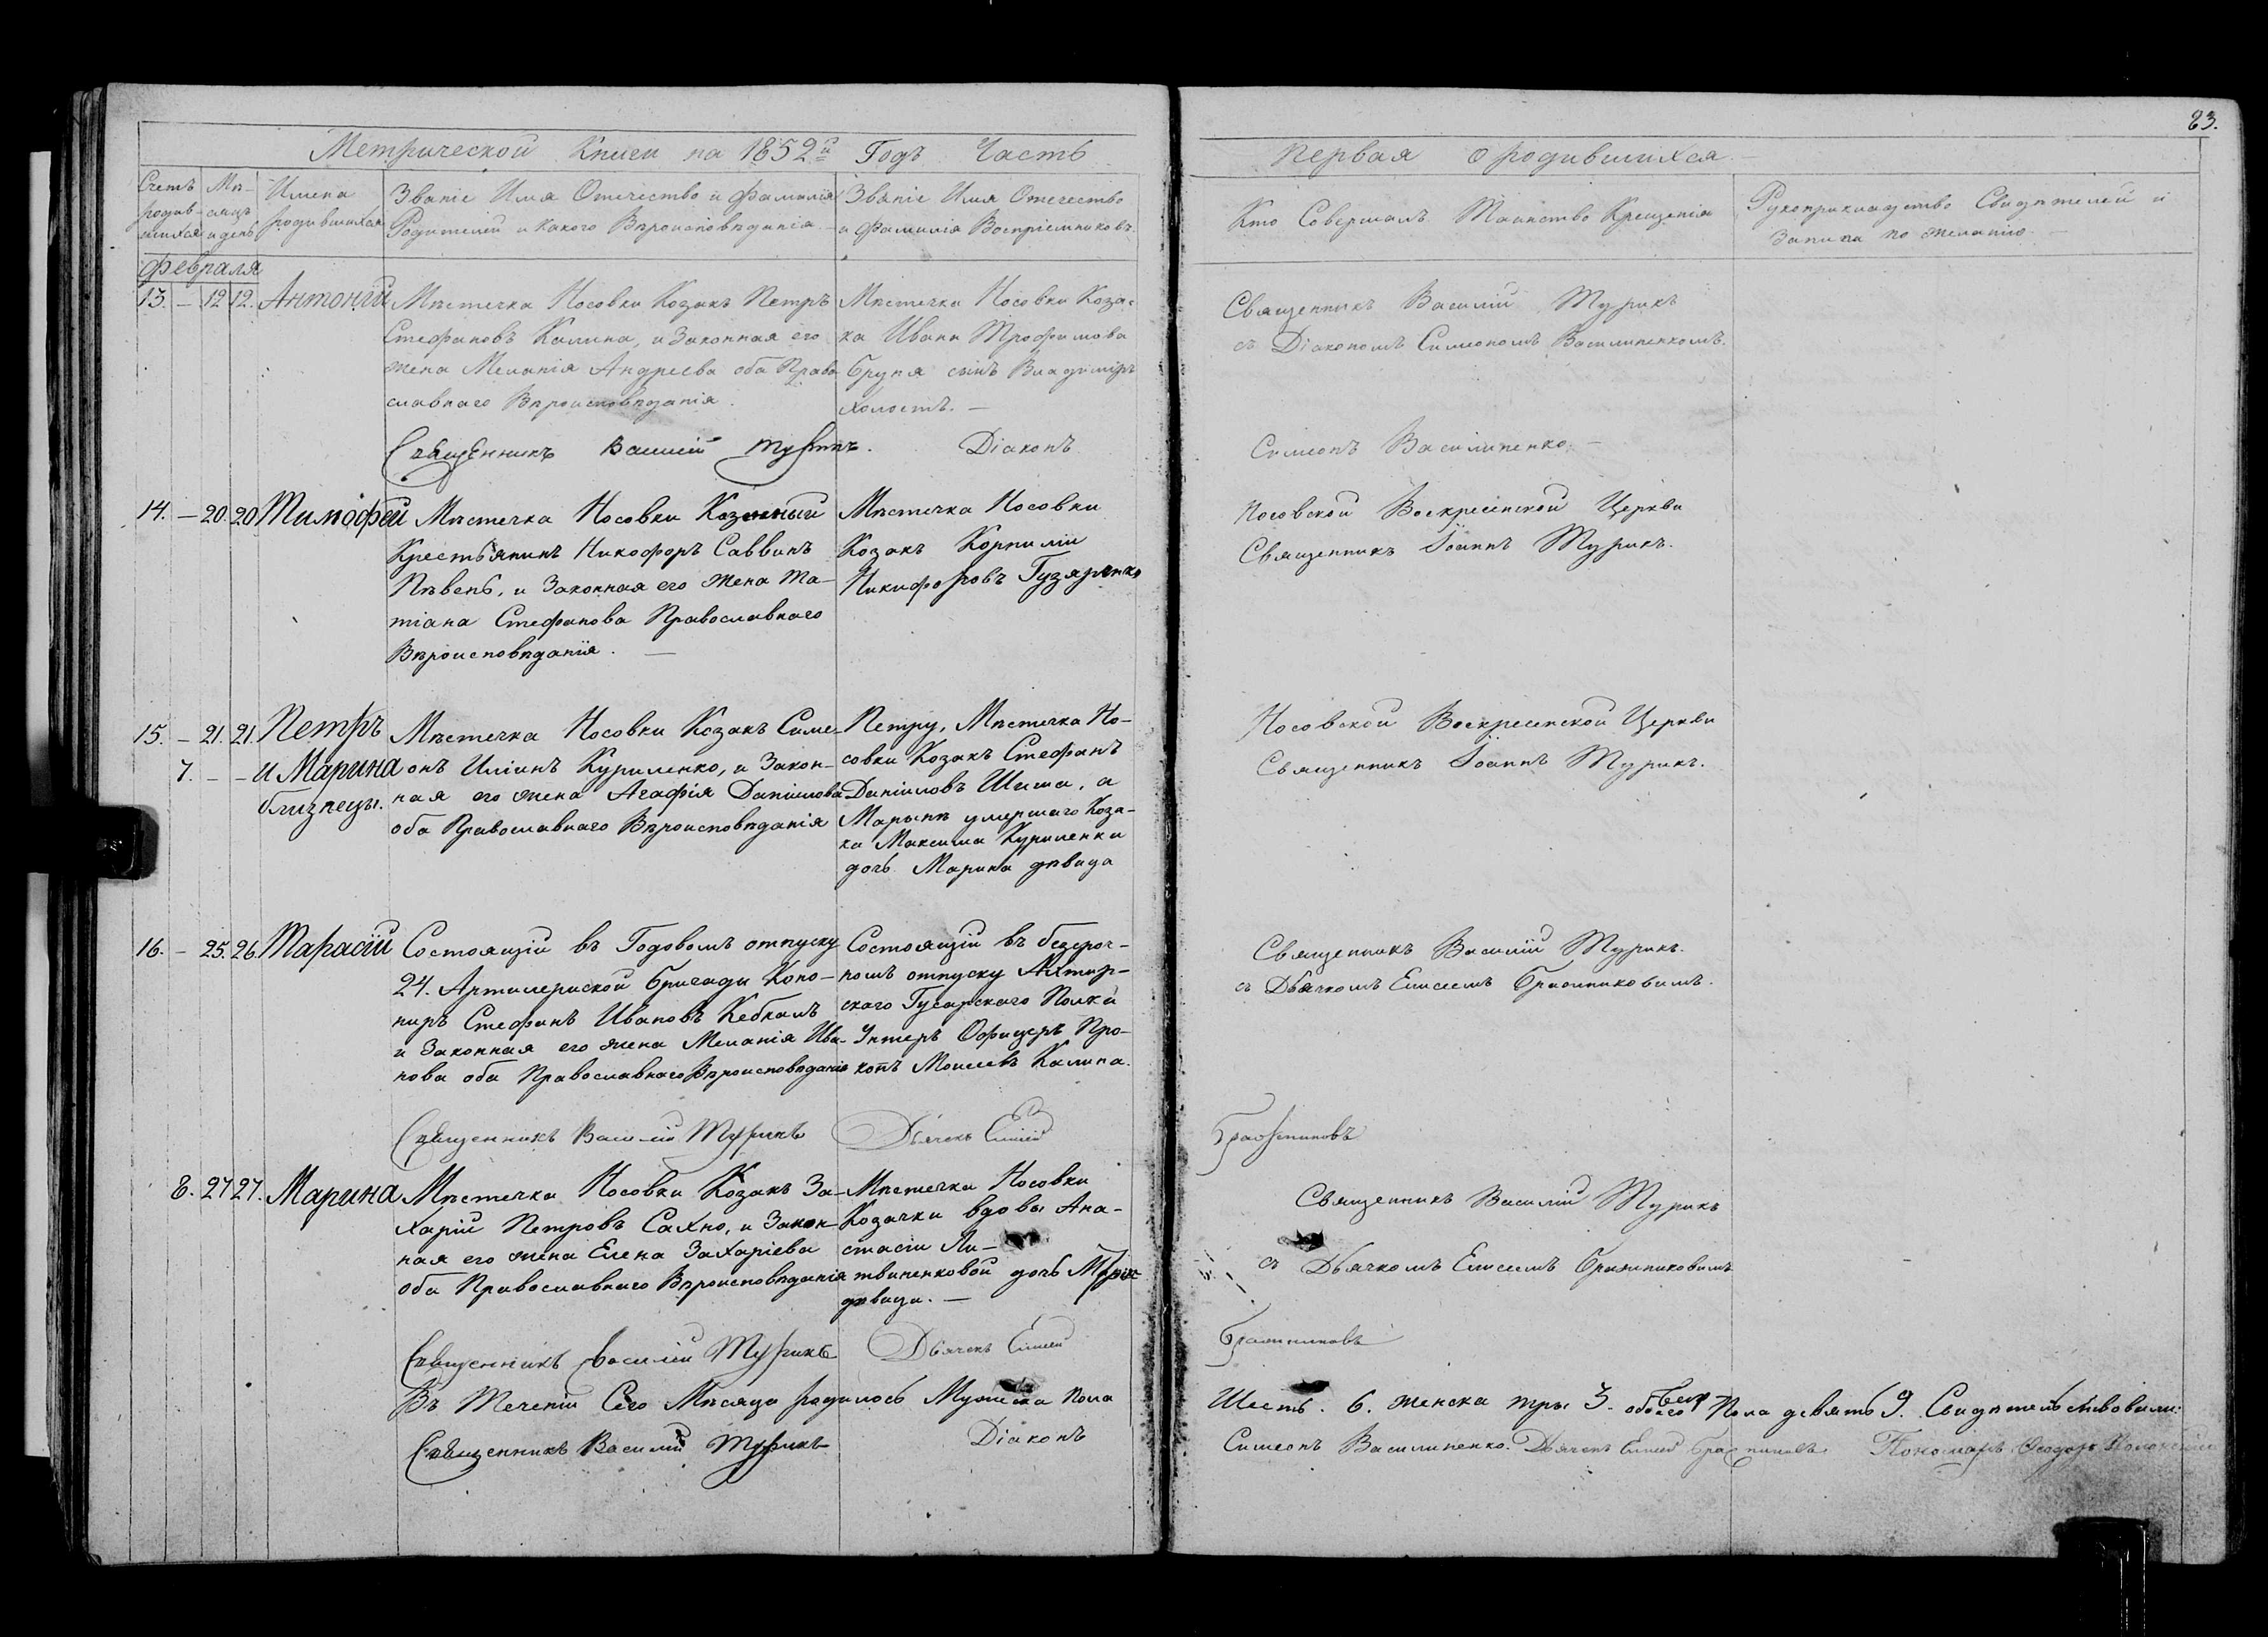 83.
Метрической Книги на 1852й Годъ Часть
первая о родившихся
Счетъ родив-шихся
Мѣ-сяцъ и день
Имена родившихся
Званіе Имя Отечество и Фамилія
Родителей и какого Вѣроисповѣданія.
Званіе Имя Отечество
и Фамилія Воспріемниковъ.
Кто Совершалъ Таинство Крещенія
Рукоприкладство Свидѣтелей и
Записи по желанію
Февраля
13. — 12 12. Антоній
Мѣстечка Носовки Козакъ Петръ
Стефановъ Калина, и Законная его
жена Меланія Андреева оба Право
славнаго Вѣроисповѣданія.
Мѣстечка Носовки Коза-
ка Ивана Трофимова
сынъ Владиміръ
холостъ. —
Священникъ Василій Турикъ
съ Діакономъ Симеономъ Василипенкомъ.
Священникъ Василій Турикъ. Діаконъ
Симеонъ Василипенко. —
14. — 20. 20 Тимофей
Мѣстечка Носовки Казенный
Крестьянинъ Никофоръ Саввинъ
Пѣвень, и Законная его жена Та-
тіана Стефанова Православнаго
Вѣроисповѣданія. —
Мѣстечка Носовки
Козакъ Корнилій
Никифоровъ
Носовской Воскресенской Церкви
Священникъ Іоаннъ Турикъ.
15. — 21. 21. Петръ
7. — — и Марина
близнецы.
Мѣстечка Носовки Козакъ Симе-
онъ Иліинъ Куриленко, и Закон-
ная его жена Агафія Даніилова
оба Православнаго Вѣроисповѣданія
Петру, Мѣстечка Но-
совки Козакъ Стефанъ
Даніиловъ Шиша, а
Марынѣ умершаго Коза-
ка Максима Куриленки
дочь Марина дѣвица
Носовской Воскресенской Церкви
Священникъ Іоаннъ Турикъ.
16. — 25. 26. Тарасій
Состоящій въ Годовомъ отпуску
24. Артилериской бригады Коно-
ниръ Стефанъ Ивановъ Кебкалъ
и Законная его жена Меланія Ива-
нова оба Православнаго Вѣроисповѣданія
Состоящій въ безсроч-
номъ отпуску Ахтир-
скаго Гусарскаго Полка
Унтеръ Офицеръ Про-
копъ Моисеевъ Калина.
Священникъ Василій Турикъ.
съ Дьячкомъ Елисеемъ
Священникъ Василій Турикъ Дьячекъ Елисей
8. 27 27. Марина
Мѣстечка Носовки Козакъ За-
харій Петровъ Сахно, и Закон-
ная его жена Елена Захаріева
оба Православнаго Вѣроисповѣданія
Мѣстечка Носовки
Козачки вдовы Ана-
стасіи Ли-
твиненковой дочь
дѣвица. —
Священникъ Василій Турикъ
съ Дьячкомъ Елисеемъ
Священникъ Василій Турикъ Дьячекъ Елисей
Въ Теченіи Сего Мѣсяца родилось Мужеска пола
Шесть. 6. женска три 3. обоего Пола девять 9. Свидѣтельствовали:
Священникъ Василій Турикъ Діаконъ
Симеонъ Василипенко. Дьячекъ Елисей Пономарь Феодоръ